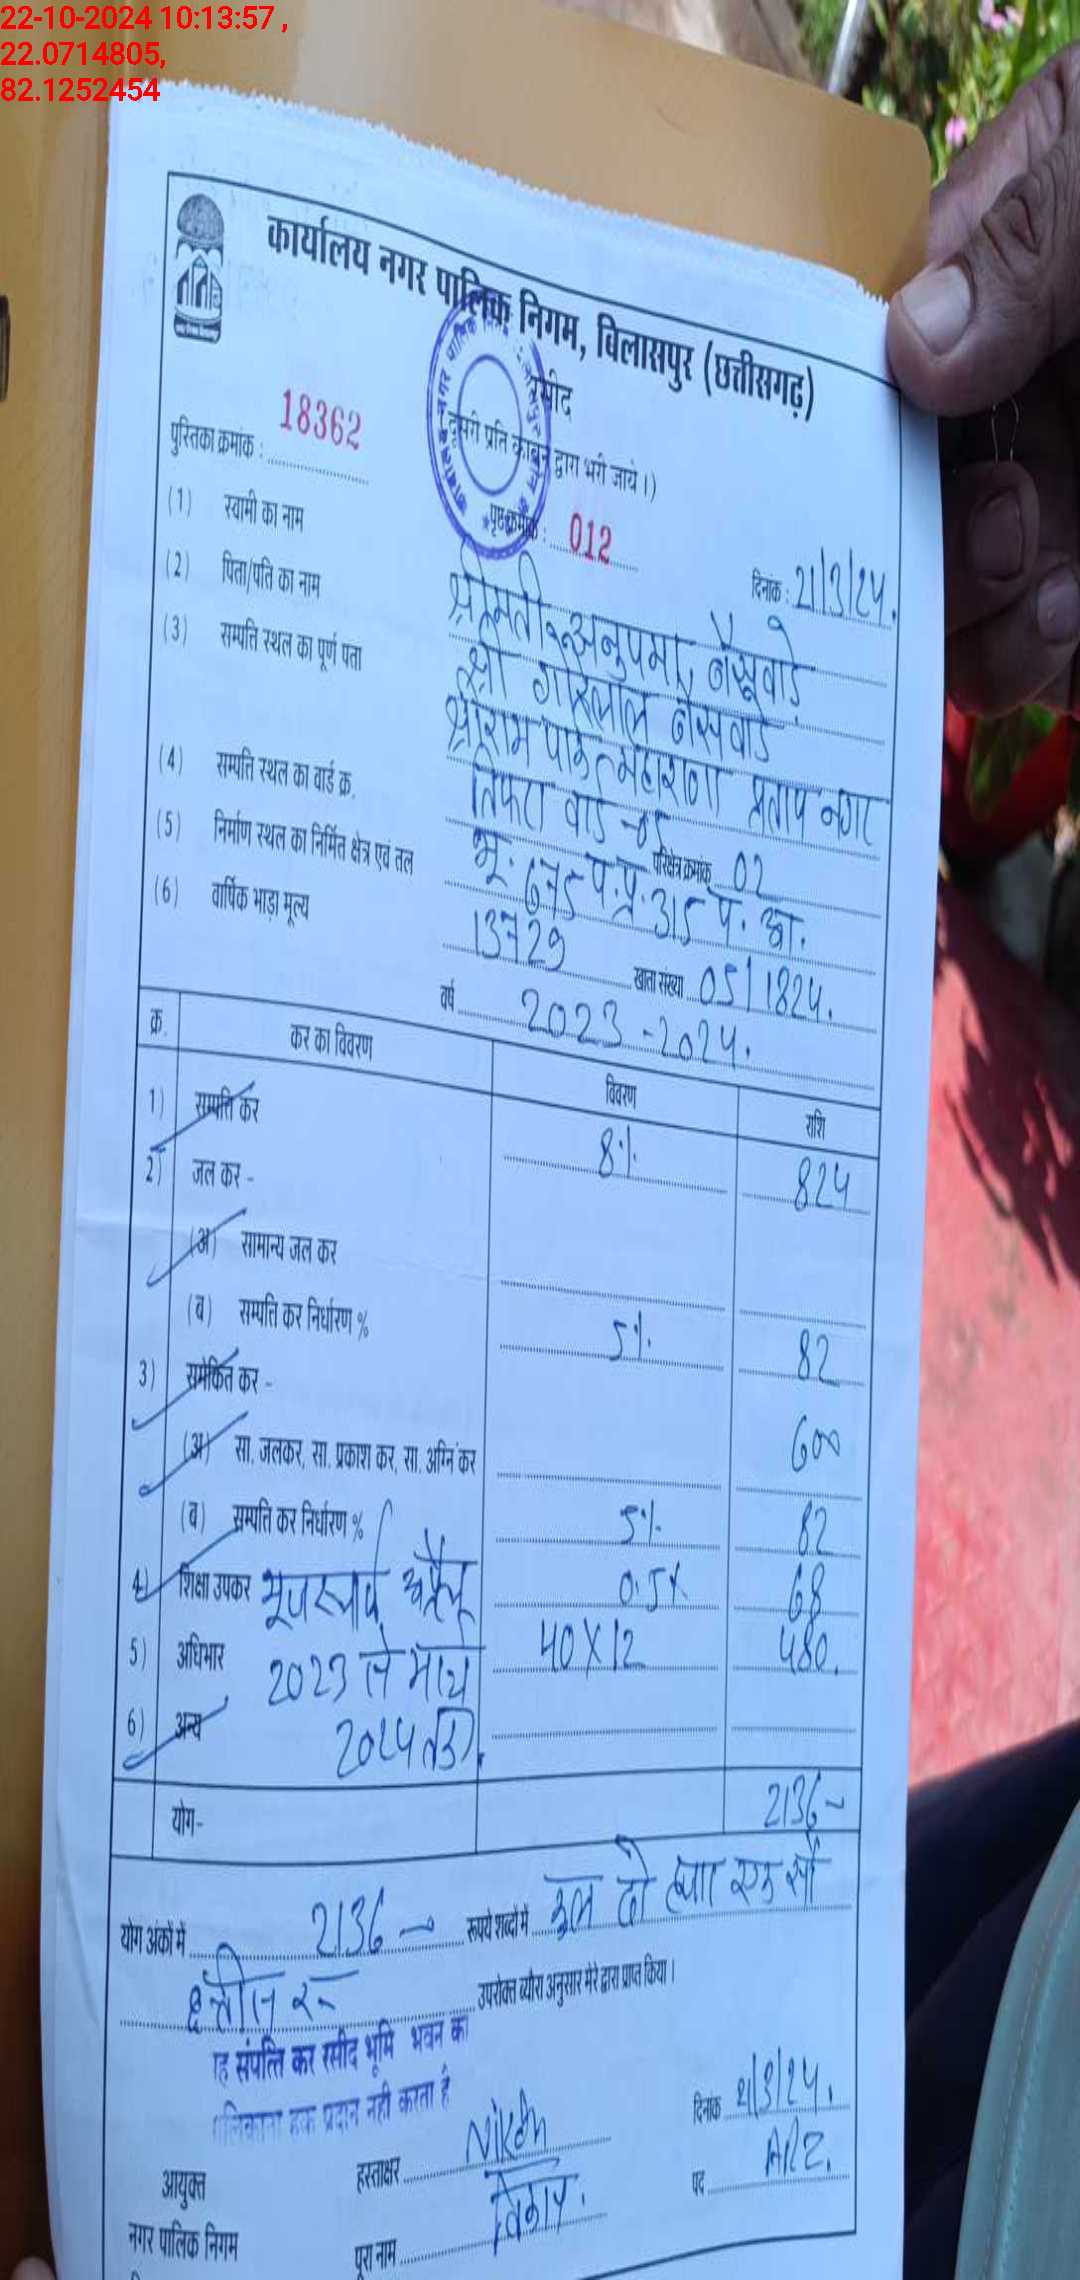 22-10-2024 10:13:57 ,
22.0714805,
82.1252454
कार्यालय नगर पालिक निगम, बिलासपुर (छत्तीसगढ़)
रसीद
दूसरी प्रति कार्बन द्वारा भरी जाये।)
पुस्तिका क्रमांक : 18362 पृष्ठ क्रमांक : 012 दिनांक : 21/3/24.
(1) स्वामी का नाम श्रीमती अनुपमा, बैसवाडे
(2) पिता/पति का नाम श्री बैसवाडे
(3) सम्पत्ति स्थल का पूर्ण पता श्रीराम पार्क महाराणा प्रताप नगर
तिफरा वार्ड
(4) सम्पत्ति स्थल का वार्ड क्र. परिक्षेत्र क्रमांक 02
(5) निर्माण स्थल का निर्मित क्षेत्र एवं तल भू. 675 प.प्र. 315 प.
(6) वार्षिक भाड़ा मूल्य 13729 खाता संख्या 05/1824.
वर्ष 2023-2024.
क्र. कर का विवरण विवरण राशि
1) सम्पत्ति कर 8% 824
2) जल कर -
(अ) सामान्य जल कर
(ब) सम्पत्ति कर निर्धारण % 5% 82
3) समेकित कर -
(अ) सा. जलकर, सा. प्रकाश कर, सा. अग्नि कर 600
(ब) सम्पत्ति कर निर्धारण % 5% 82
4) शिक्षा उपकर 0.5% 68
5) अधिभार 2023 से मार्च 40X12 480.
6) अन्य 2024 तक
योग- 2136-
योग अंकों में 2136- रूपये शब्दों में कुल दो हजार एक सौ
छत्तीस रू उपरोक्त ब्यौरा अनुसार मेरे द्वारा प्राप्त किया।
ह संपत्ति कर रसीद भूमि भवन का
लिकाना हक प्रदान नही करता है
दिनांक 21/3/24.
आयुक्त हस्ताक्षर पद
नगर पालिक निगम पूरा नाम